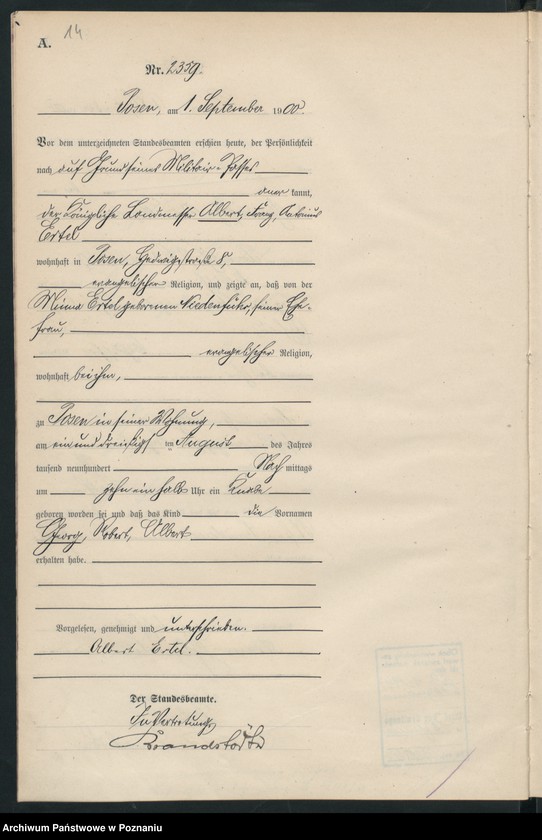 14
A.
Nr. 2359.
Posen, am 1. September 1900.
Vor dem unterzeichneten Standesbeamten erschien heute, der Persönlichkeit
nach auf Grund seines Militair-Passes
aner kannt,
der Königliche Landmesser Albert, Franz, Antonius
Ertel
wohnhaft in Posen, Hedwigstraße 8,
evangelischer Religion, und zeigte an, daß von der
Minna Ertel geborenen Niedenführ, seiner Ehe-
frau,
evangelischer Religion,
wohnhaft bei ihm,
zu Posen in seiner Wohnung,
am ein und dreißigs im August des Jahres
tausend neunhundert Nach mittags
um zehn ein halb Uhr ein Knabe
geboren worden sei und daß das Kind die Vornamen
Georg, Robert, Albert
erhalten habe.
Vorgelesen, genehmigt und unterschrieben.
Albert Ertel.
Der Standesbeamte.
In Vertretung
Archiwum Państwowe w Poznaniu